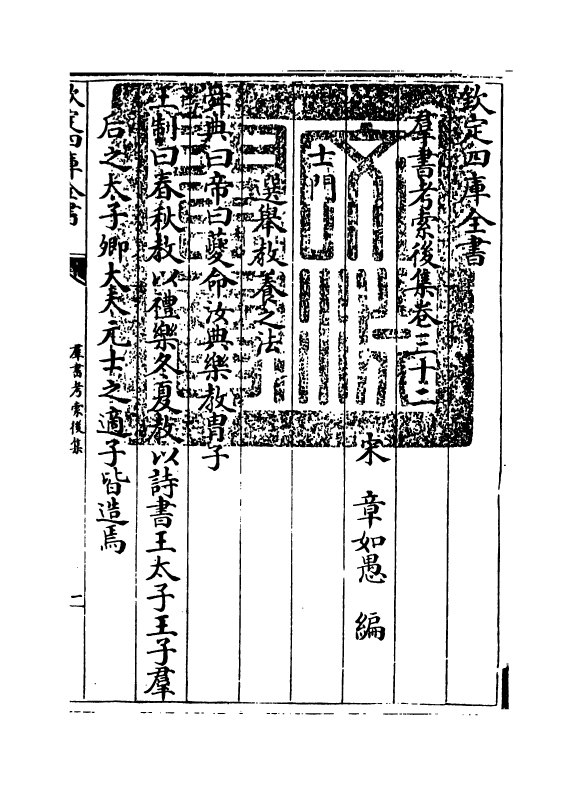 欽定四庫全書
羣書考索後集卷三十二
宋 章如愚 編
士門
選舉教養之法
舜典曰帝曰夔命汝典樂教胄子
王制曰春秋教以禮樂冬夏教以詩書王太子王子羣
后之太子卿大夫元士之適子皆造焉
欽定四庫全書
羣書考索後集